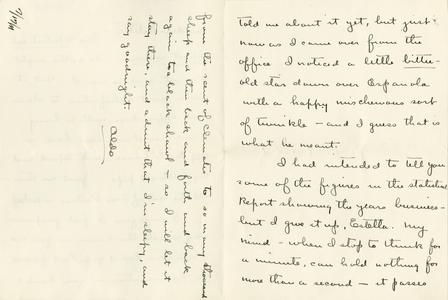 told me about it yet, but just
now as I came over from the
office I noticed a little
old star down over Española
with a happy mischevous sort
of twinkle - and I guess that is
what he meant.
I had intended to tell you
some of the figures in the statistical
Report showing the years business -
but I give it up, Estella. My
mind - when I stop to think for
a minute, can hold nothing for
more than a second - it passes
from the scent of Clematis to so many thousand
sheep and then back and forth and back
again to a black shawl - so I will let it
stay there, and admit that I'm sleepy, and
say goodnight.
Aldo